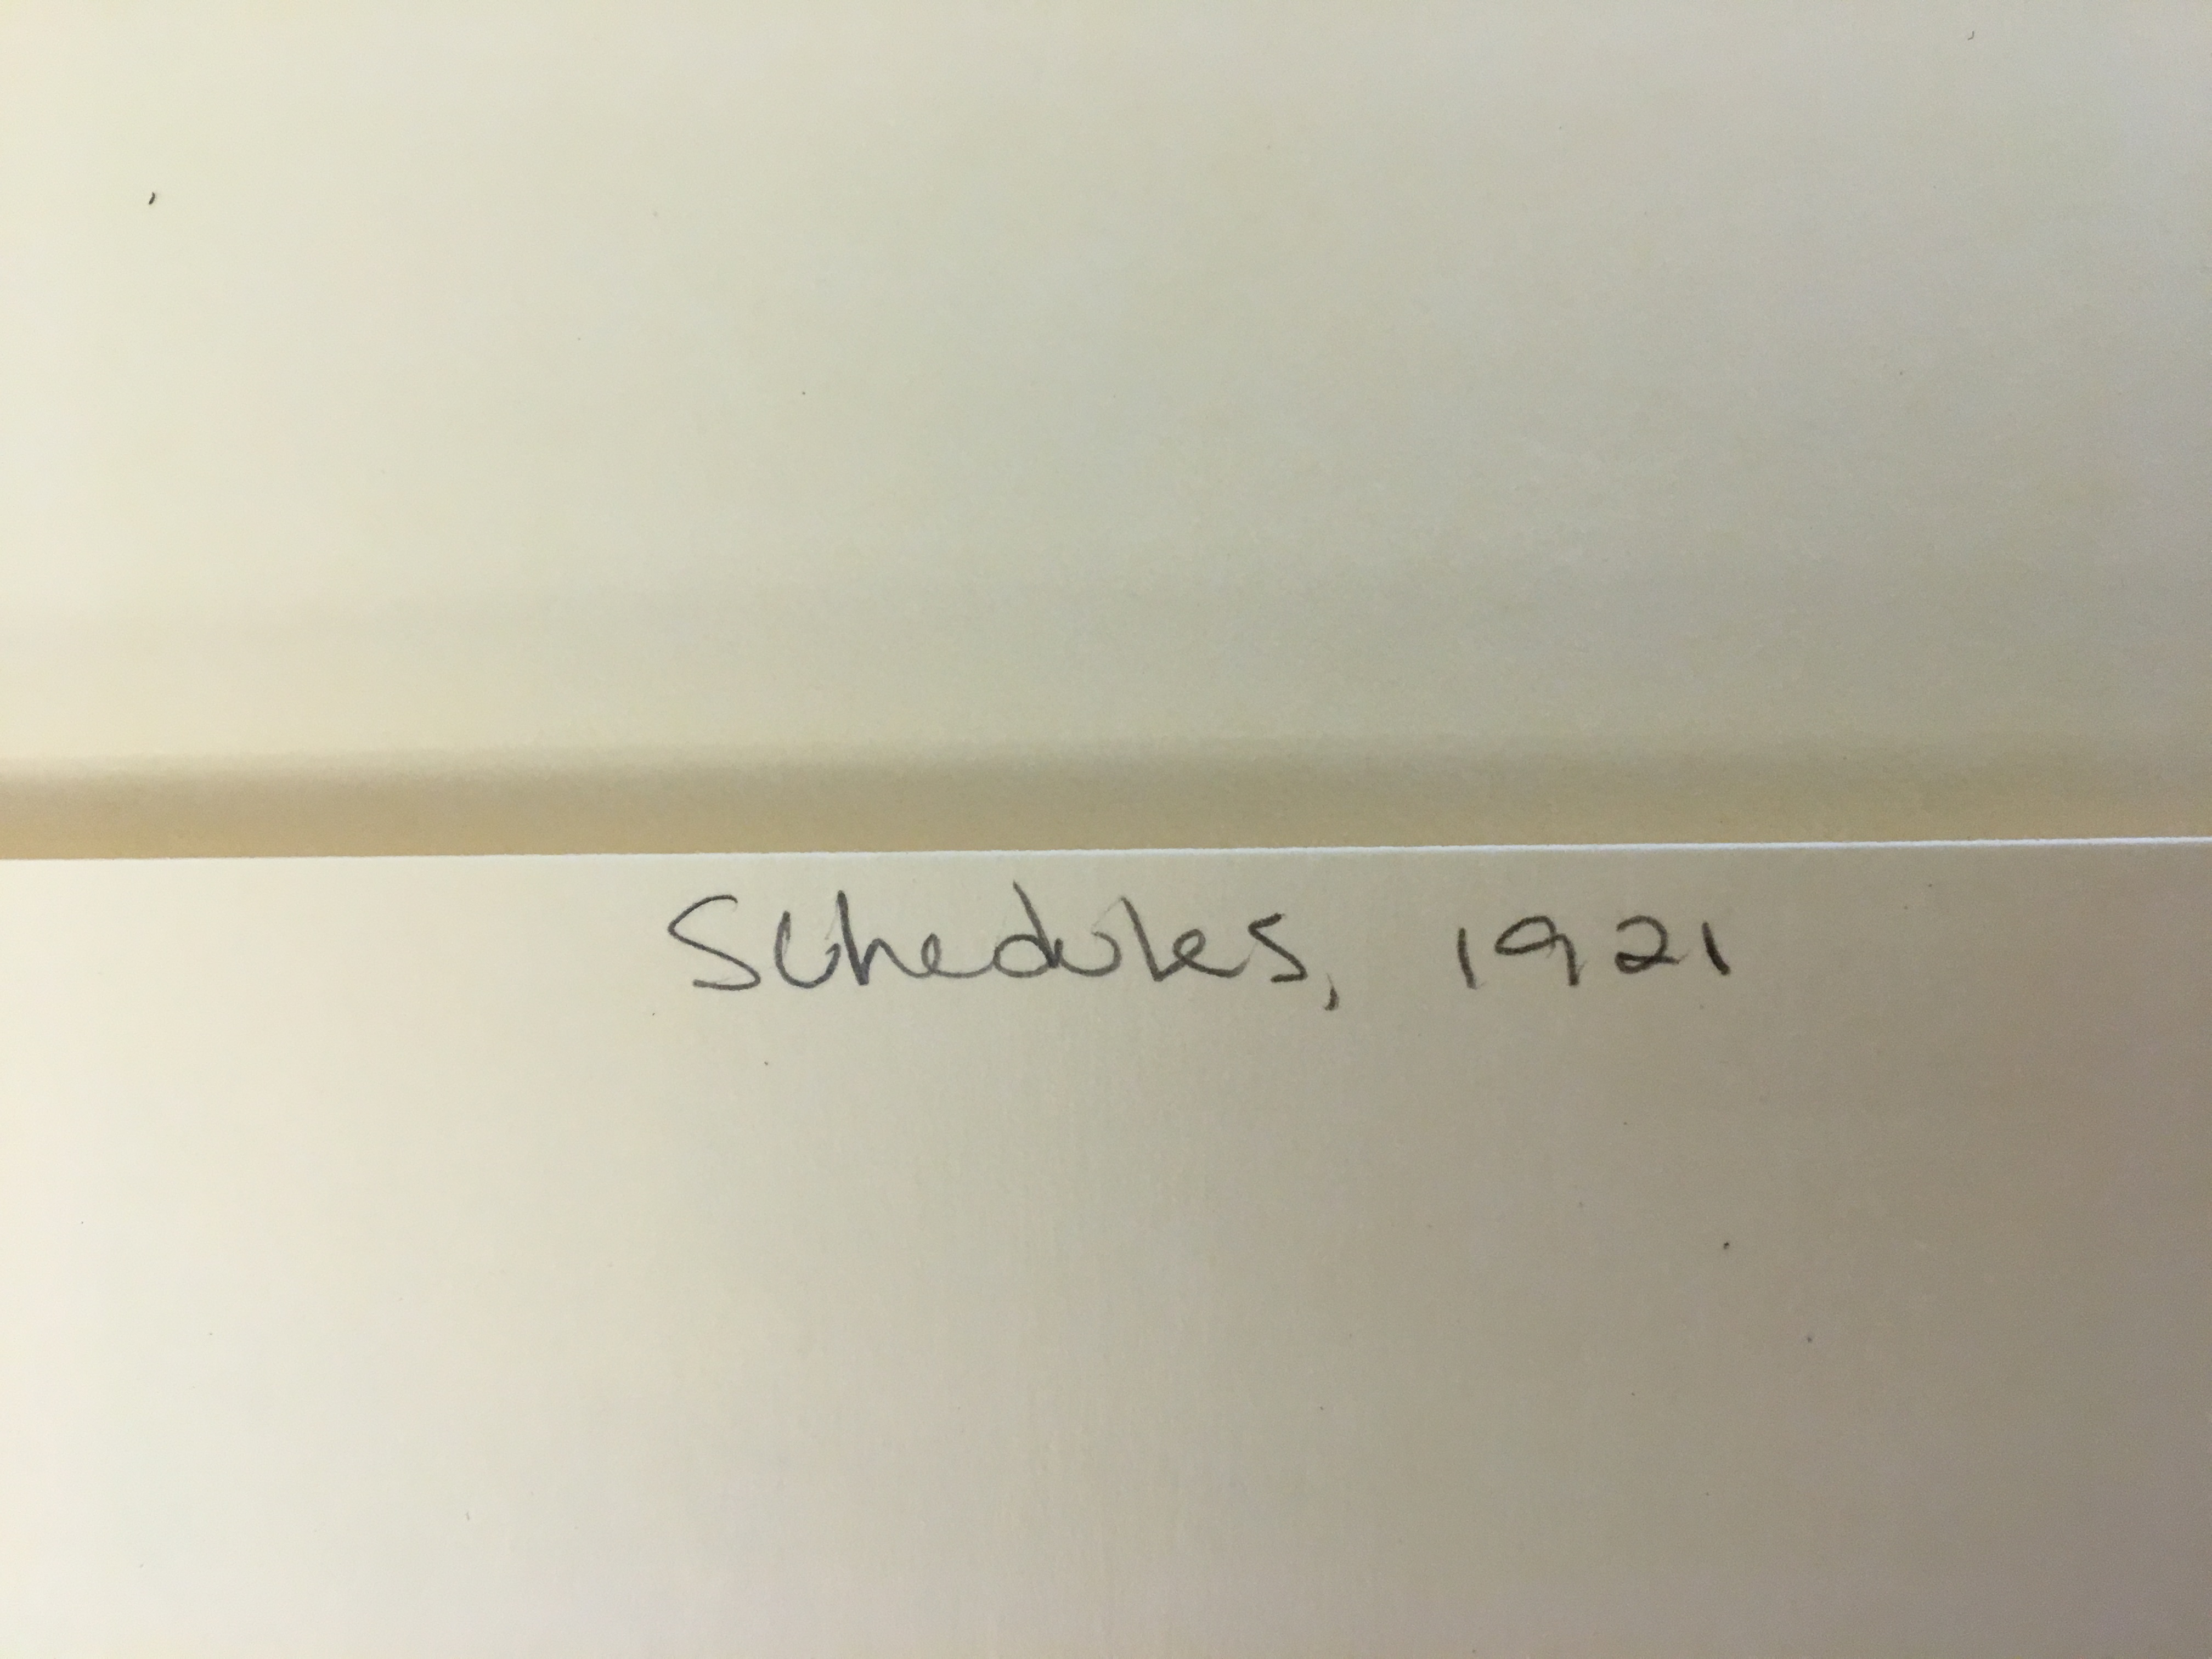 Schedules, 1921